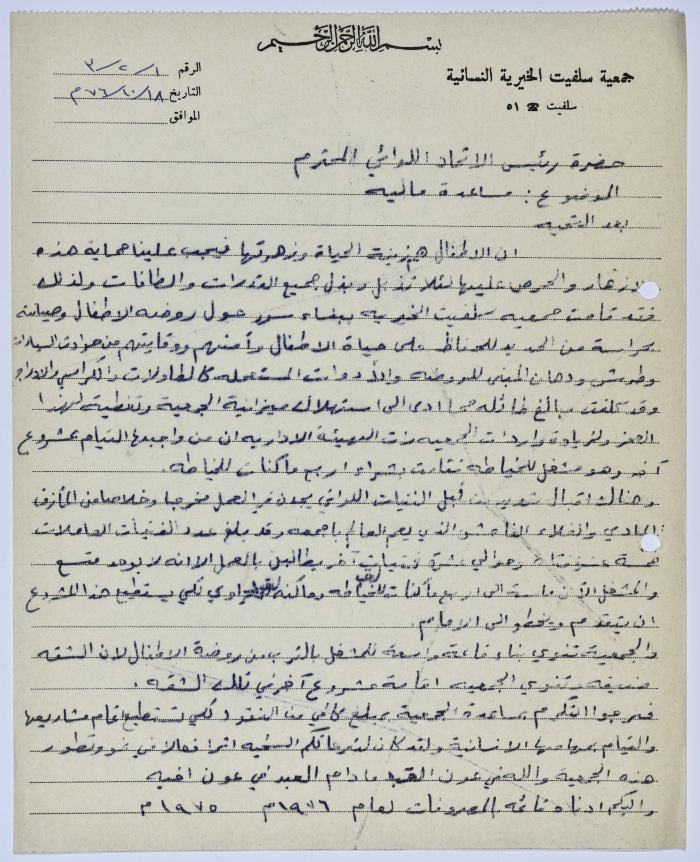 بسم الله الرحمن الرحيم
جمعية سلفيت الخيرية النسائية
سلفيت ☎ ٥١
الرقم ٣/٢/١
التاريخ ٧٦/١٠/١٨م
الموافق
حضرة رئيس الاتحاد اللوائي المحترم
الموضوع : مساعدة ماليه
بعد التحيه
ان الاطفال هم زينة الحياة وزهرتها فيجب علينا حماية هذه
الازهار والحرص عليها لئلا تذبل وبذل جميع القدرات والطاقات ولذلك
فقد قامت جمعيه سلفيت الخيريه ببناء سور حول روضه الاطفال وصيانته
بحراسة من الحديد للحفاظ على حياة الاطفال وأمنهم ووقايتهم من حوادث السيارات
وطرش ودهان المبنى للروضه والأدوات المستعمله كالطاولات والكراسي والادراج
وقد كلفت مبالغ طائله مما ادى الى استهلاك ميزانية الجمعية وتغطية لهذا
العجز ولزيادة واردات الجمعيه رأت الهيئة الاداريه ان من واجبها القيام بمشروع
آخر وهو مشغل للخياطه فقامت بشراء اربع ماكنات للخياطه .
وهناك اقبال شديد من قبل الفتيات اللواتي يجدن في العمل مخرجا وخلاصا من المأزق
المادي والغلاء الفاحش الذي يعم العالم بأجمعه وقد بلغ عدد الفتيات العاملات
خمسة عشر فتاة وحوالي عشرة فتيات أخر يطالبن بالعمل الا انه لا يوجد متسع
والمشغل الآن ماسة الى اربع ماكنات للخياطه وماكنه لكي يستطيع هذا المشروع
ان يتقدم ويخطو الى الامام .
والجمعية تنوي بناء قاعة واسعة للمشغل بالقرب من روضة الاطفال لان الشقه
ضيقه وتنوي الجمعيه اقامة مشروع آخر في تلك الشقه .
فنرجوا التكرم بمساعدة الجمعية بمبلغ كافي من النقود لكي تستطيع اتمام مشاريعها
والقيام بمهامها الانسانية ولقد كان لتبرعاتكم السخيه اثرا فعالا في نمو وتطور
هذه الجمعية والله في عون العبد ما دام العبد في عون اخيه
واليكم ادناه قائمه بالمصروفات لعام ١٩٧٦م ١٩٧٥م